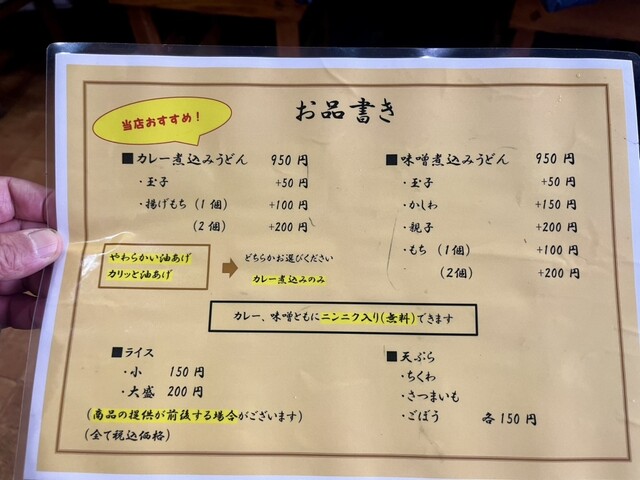 お品書き
当店おすすめ!
■カレー煮込みうどん 950円
・玉子 +50円
・揚げもち(1個) +100円
(2個) +200円
やわらかい油あげ
カリッと油あげ
どちらかお選びください
カレー煮込みのみ
■味噌煮込みうどん 950円
・玉子 +50円
・かしわ +150円
・親子 +200円
・もち(1個) +100円
(2個) +200円
カレー、味噌ともにニンニク入り(無料)できます
■ライス
・小 150円
・大盛 200円
(商品の提供が前後する場合がございます)
(全て税込価格)
■天ぷら
・ちくわ
・さつまいも
・ごぼう 各150円